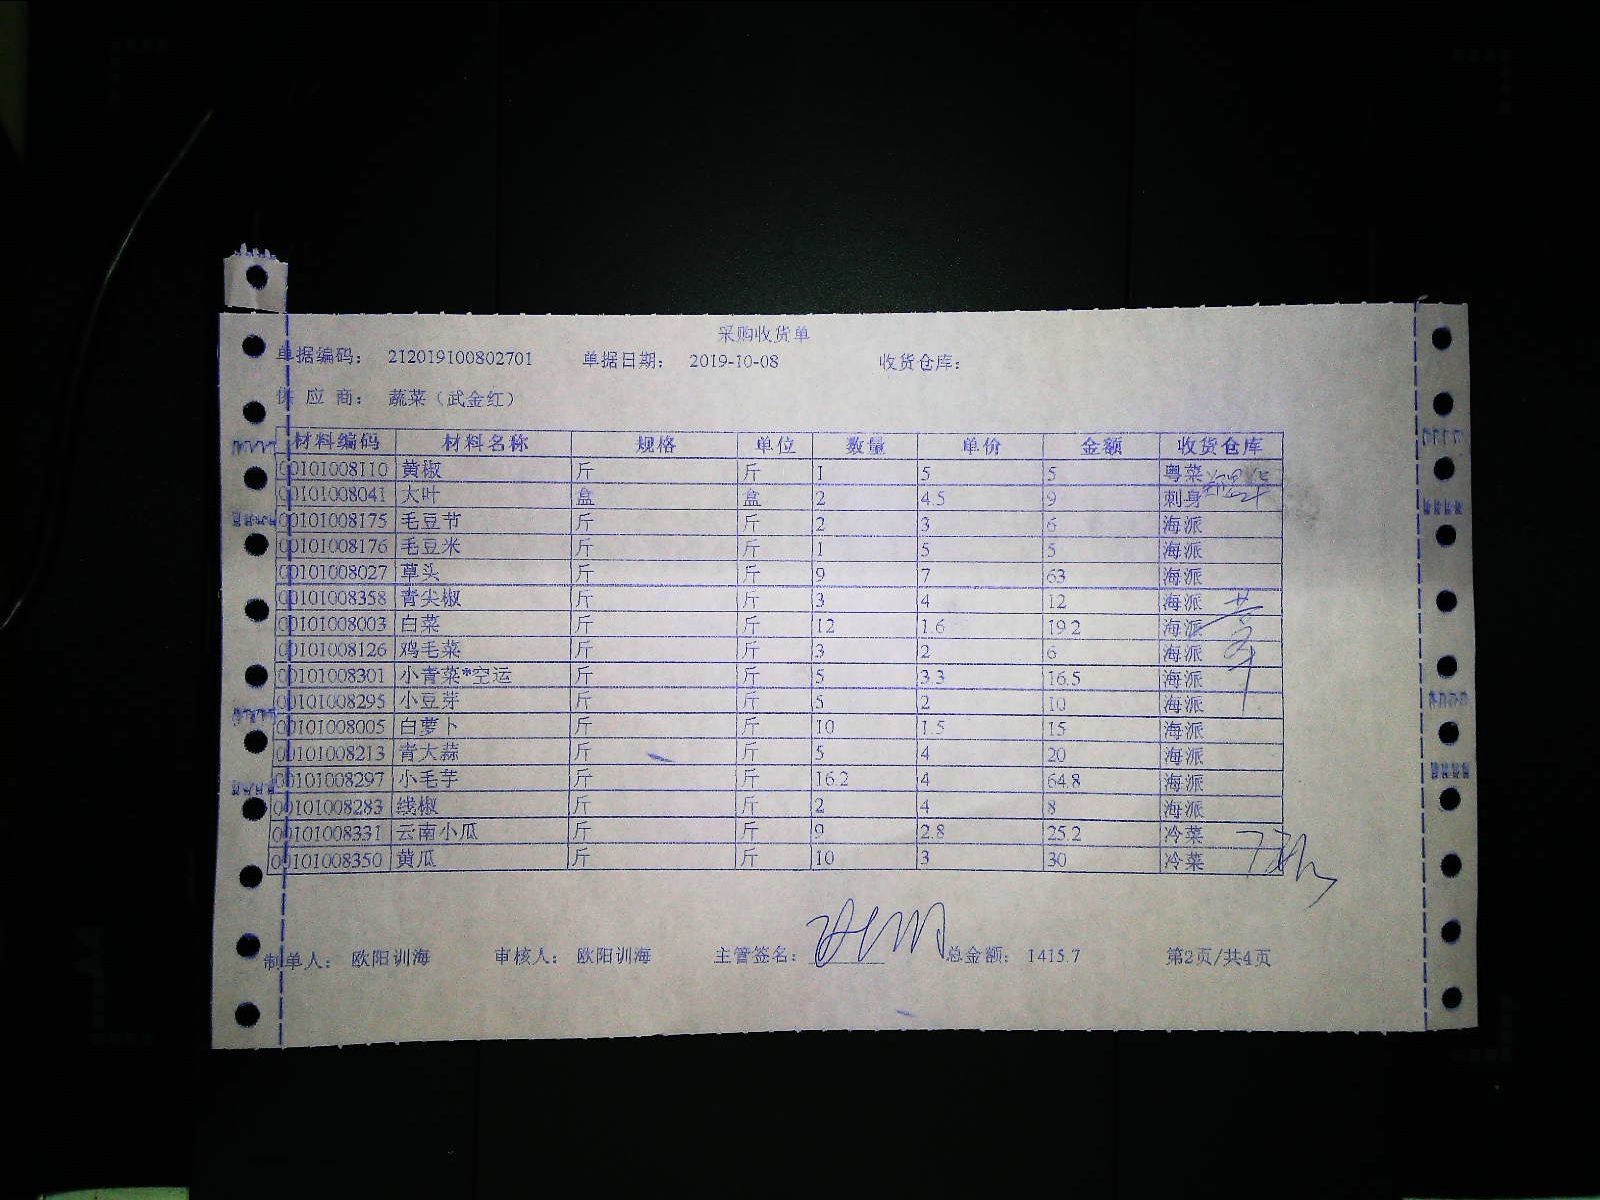 采购收货单
单据编码： 212019100802701 单据日期： 2019-10-08 收货仓库：
供 应 商： 蔬菜（武金红）
材料编码 材料名称 规格 单位 数量 单价 金额 收货仓库
00101008110 黄椒 斤 斤 1 5 5 粤菜
00101008041 大叶 盒 盒 2 4.5 9 刺身
00101008175 毛豆节 斤 斤 2 3 6 海派
00101008176 毛豆米 斤 斤 1 5 5 海派
00101008027 草头 斤 斤 9 7 63 海派
00101008358 青尖椒 斤 斤 3 4 12 海派
00101008003 白菜 斤 斤 12 1.6 19.2 海派
00101008126 鸡毛菜 斤 斤 3 2 6 海派
00101008301 小青菜*空运 斤 斤 5 3.3 16.5 海派
00101008295 小豆芽 斤 斤 5 2 10 海派
00101008005 白萝卜 斤 斤 10 1.5 15 海派
00101008213 青大蒜 斤 斤 5 4 20 海派
00101008297 小毛芋 斤 斤 16.2 4 64.8 海派
00101008283 线椒 斤 斤 2 4 8 海派
00101008331 云南小瓜 斤 斤 9 2.8 25.2 冷菜
00101008350 黄瓜 斤 斤 10 3 30 冷菜
制单人： 欧阳训海 审核人： 欧阳训海 主管签名： 总金额： 1415.7 第2页/共4页